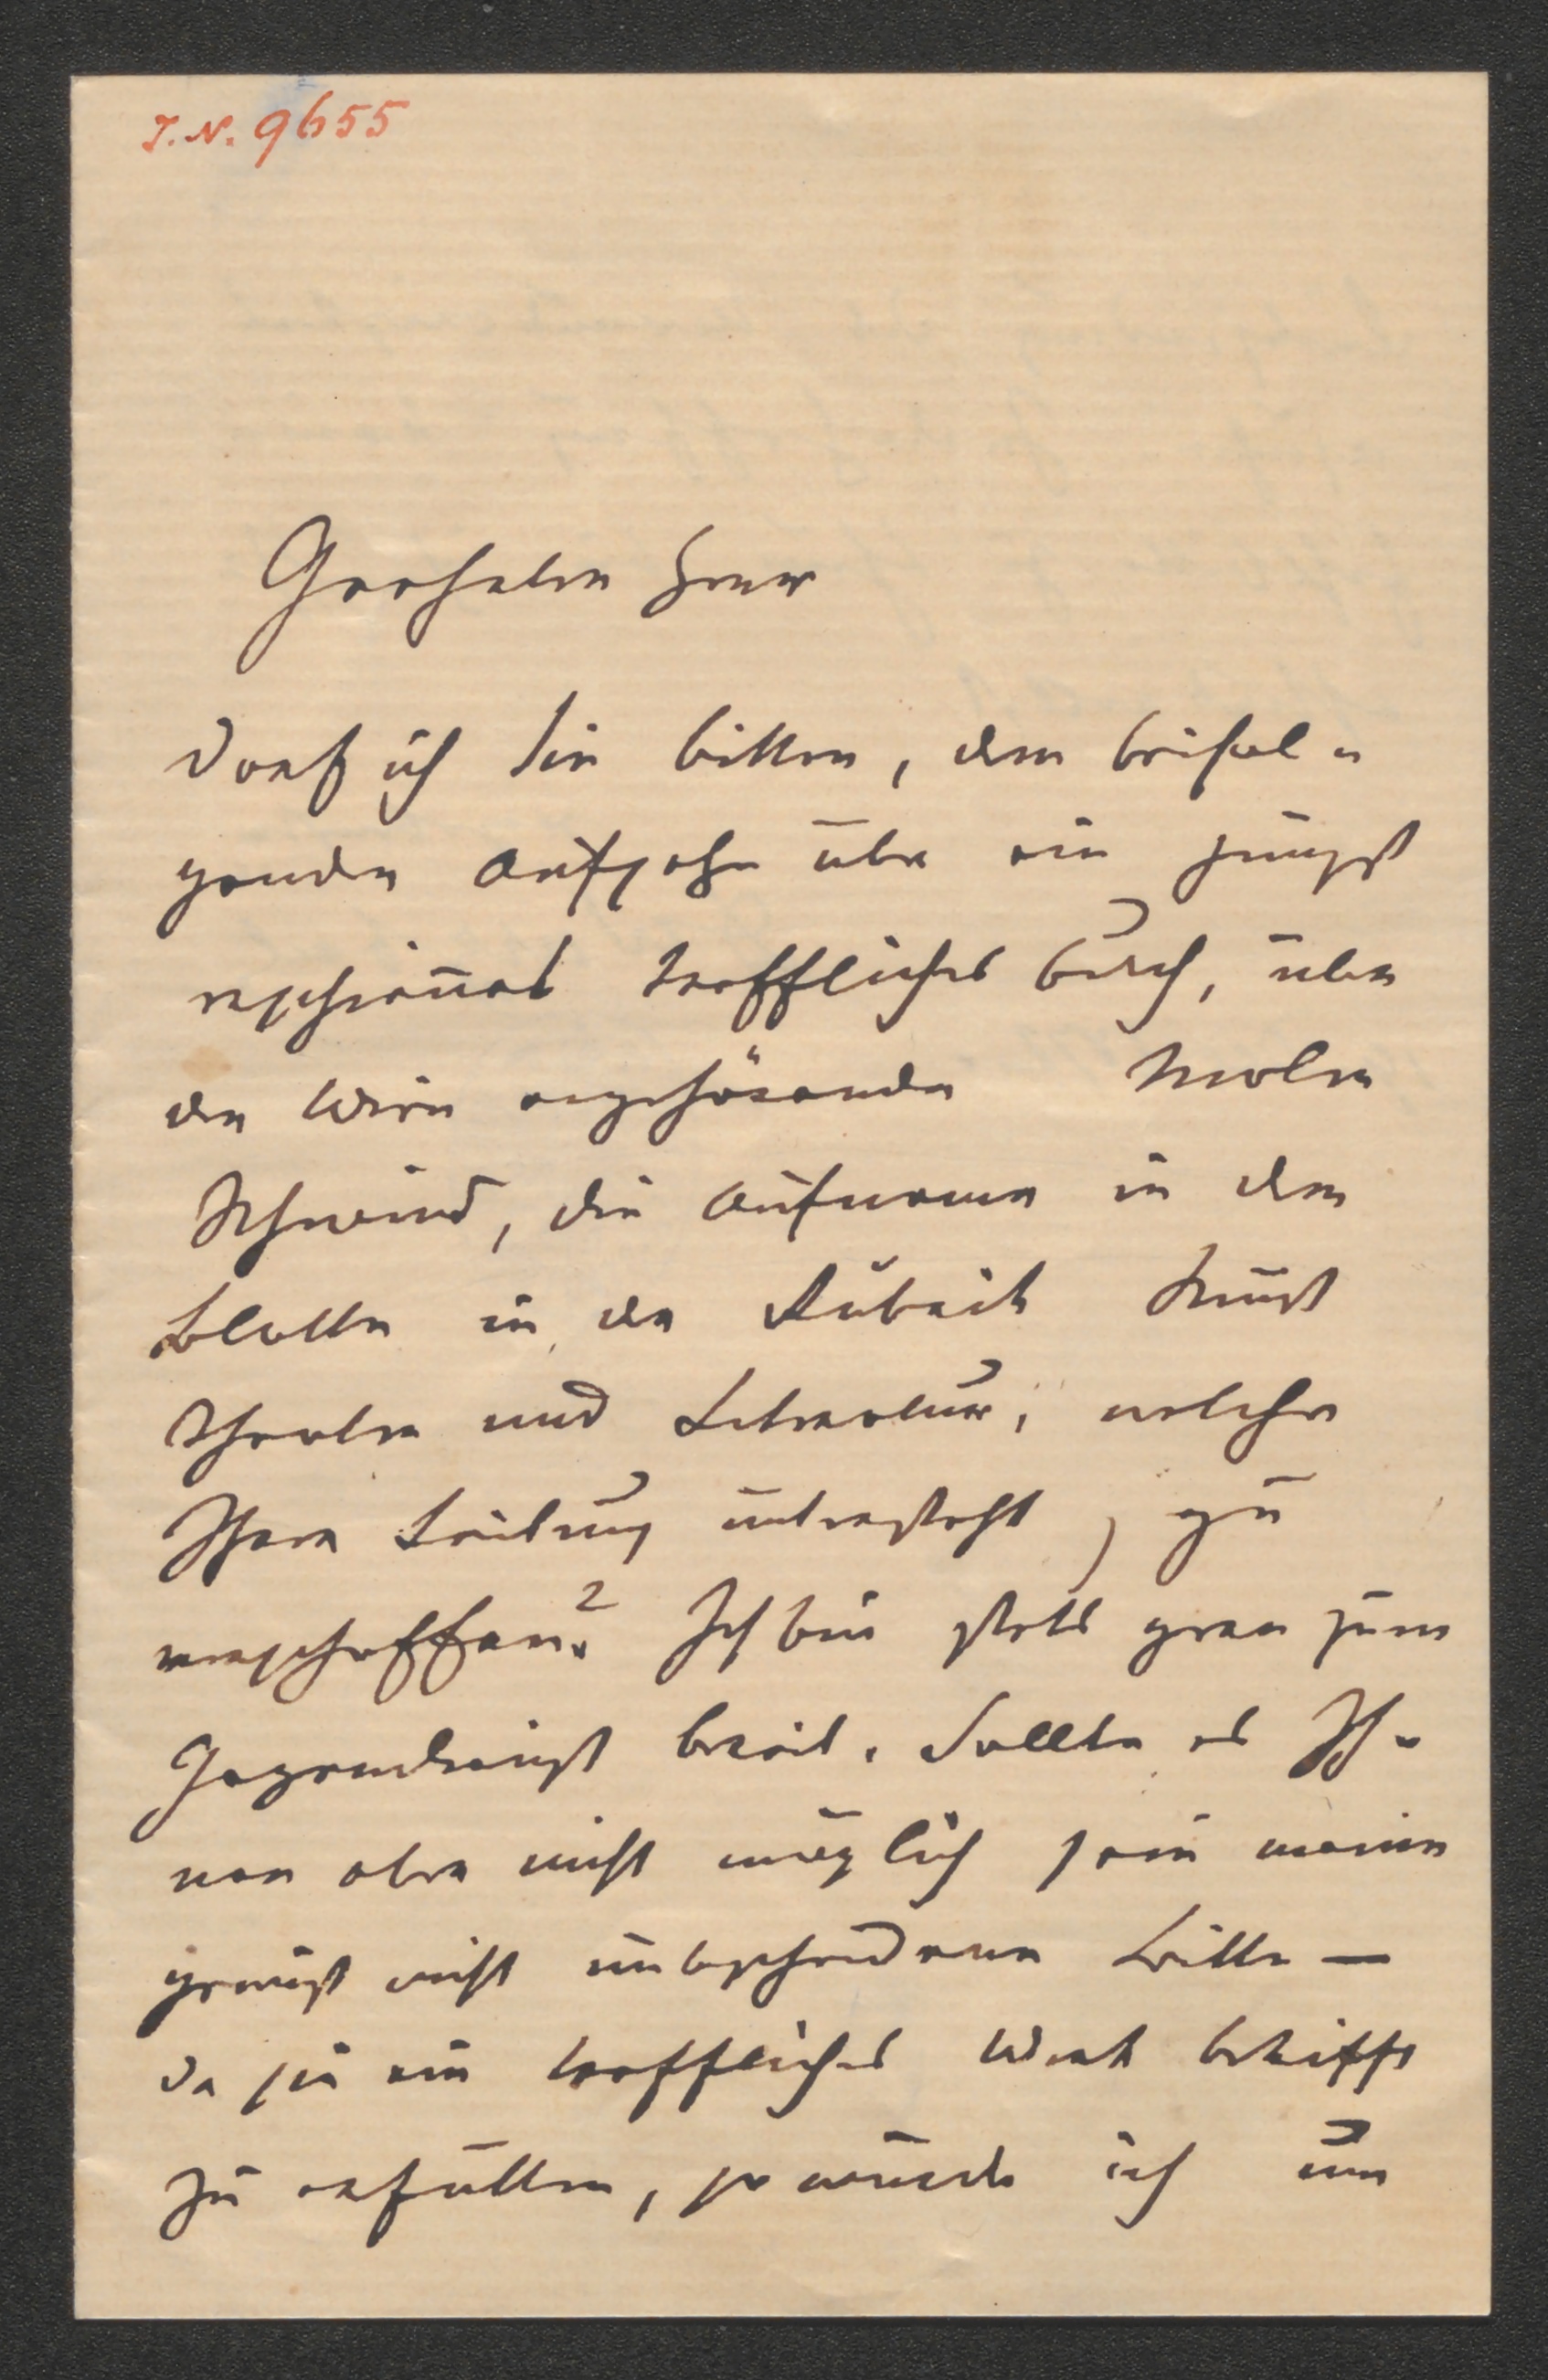 I.N. 9655
Geehrter Herr
Darf ich Sie bitten, dem beifol-
genden Aufsatze über ein jüngst
erschienenes treffliches Buch, über
den Wien angehörenden Maler
Schwind, die Aufname in dem
Blatte in der Rubrik Kunst
Theater und Literatur, welche
Ihrer Leitung untersteht, zu
verschaffen? Ich bin stets gern zum
Gegendienst bereit. Sollte es Ih-
nen aber nicht möglich sein meine
gewiß nicht unbescheidene Bitte —
da sie ein treffliches Werk betrifft
zu erfüllen, so würde ich um